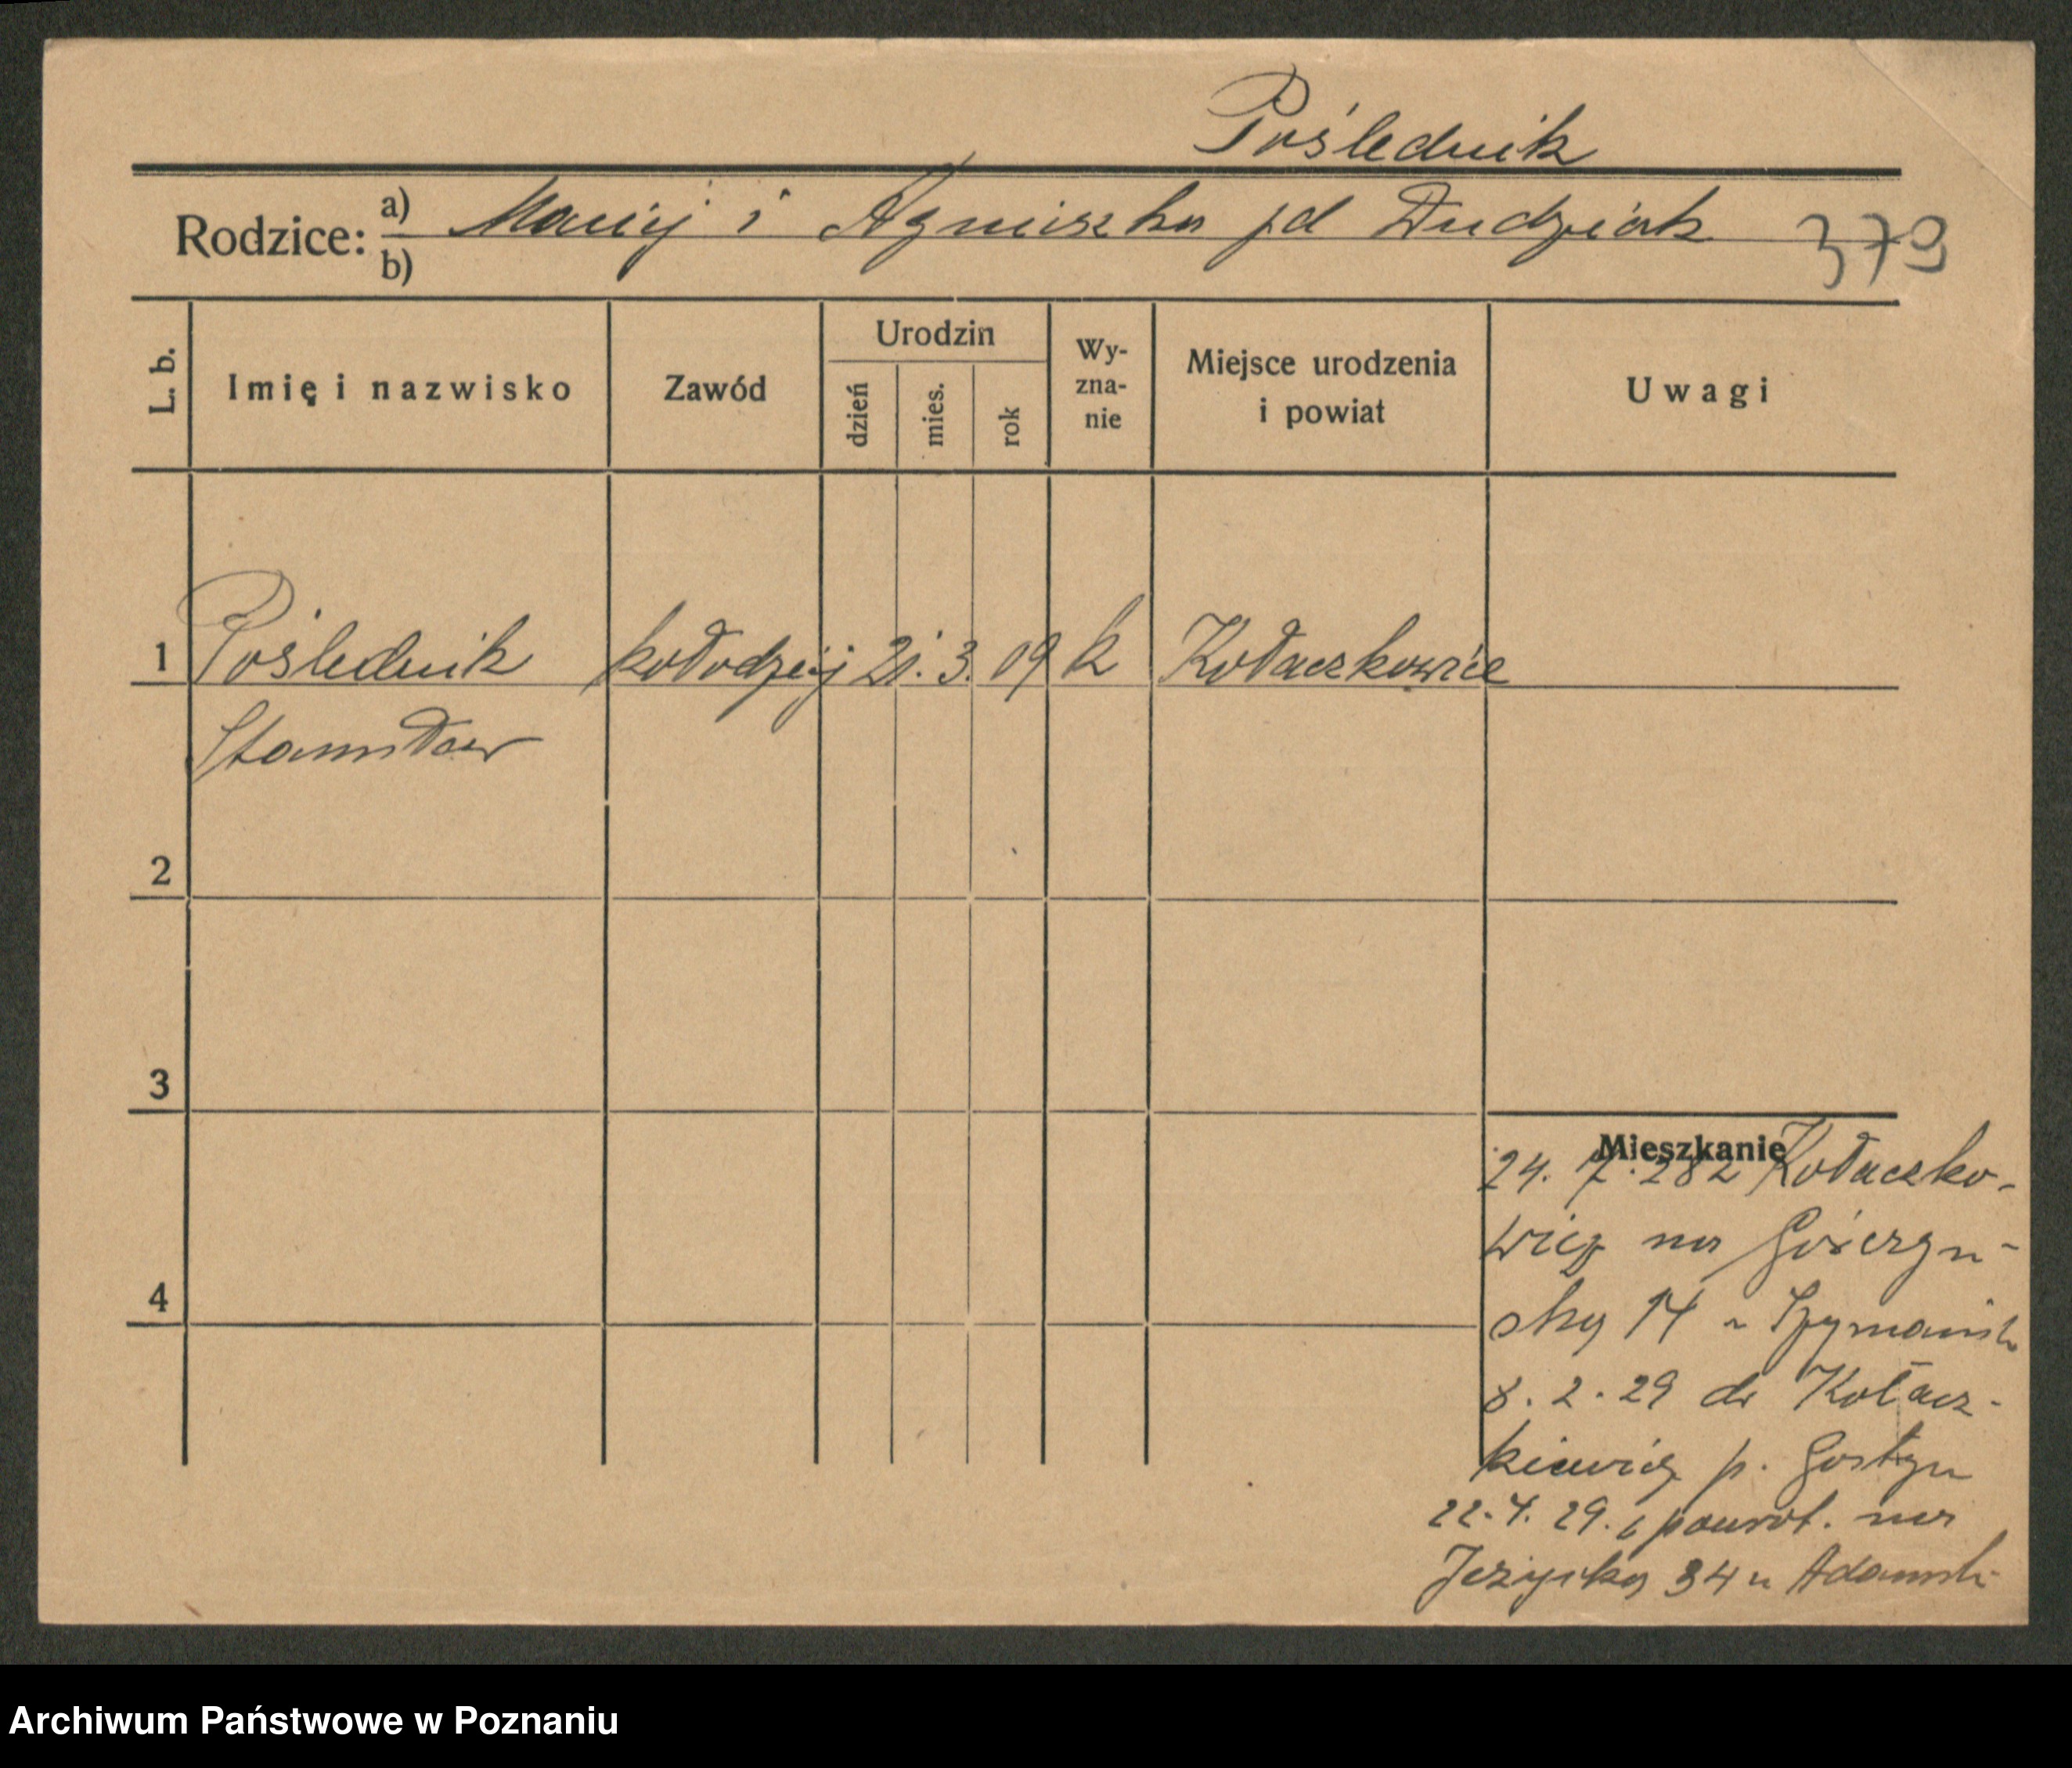 Poślednik
Rodzice: a) Maciej i Agnieszka pd Dudziak
b)
379
L. b.
Imię i nazwisko
Zawód
Urodzin
dzień
mies.
rok
Wy-
zna-
nie
Miejsce urodzenia
i powiat
Uwagi
1 Poślednik kołodziej 21. 3. 09 k Kołaczkowice
Stanisław
2
3
4
Mieszkanie
24. 7. 28 z Kołaczko-
wic na
14 u Szymańsk
8. 2. 29 do Kołacz-
kowic p. Gostyn
22. 4. 29. z powrot. na
Jeżycka 34 u Adamsk
Archiwum Państwowe w Poznaniu